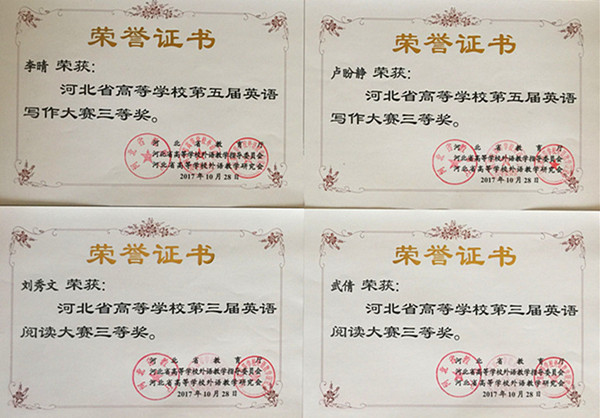 荣誉证书
李晴 荣获：
河北省高等学校第五届英语
写作大赛三等奖。
河北省教育厅
河北省高等学校外语教学指导委员会
河北省高等学校外语教学研究会
2017年10月28日
荣誉证书
卢盼静 荣获：
河北省高等学校第五届英语
写作大赛三等奖。
河北省教育厅
河北省高等学校外语教学指导委员会
河北省高等学校外语教学研究会
2017年10月28日
荣誉证书
刘秀文 荣获：
河北省高等学校第三届英语
阅读大赛三等奖。
河北省教育厅
河北省高等学校外语教学指导委员会
河北省高等学校外语教学研究会
2017年10月28日
荣誉证书
武倩 荣获：
河北省高等学校第三届英语
阅读大赛三等奖。
河北省教育厅
河北省高等学校外语教学指导委员会
河北省高等学校外语教学研究会
2017年10月28日